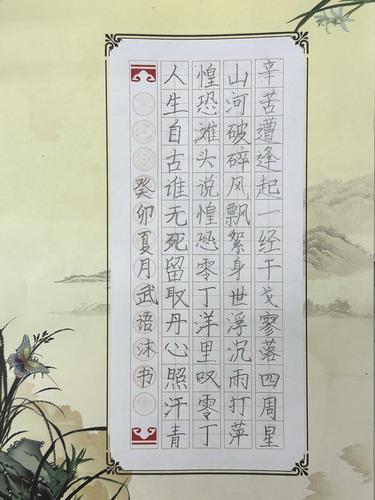 辛苦遭逢起一经干戈寥落四周星
山河破碎风飘絮身世浮沉雨打萍
惶恐滩头说惶恐零丁洋里叹零丁
人生自古谁无死留取丹心照汗青
癸卯夏月武语沫书